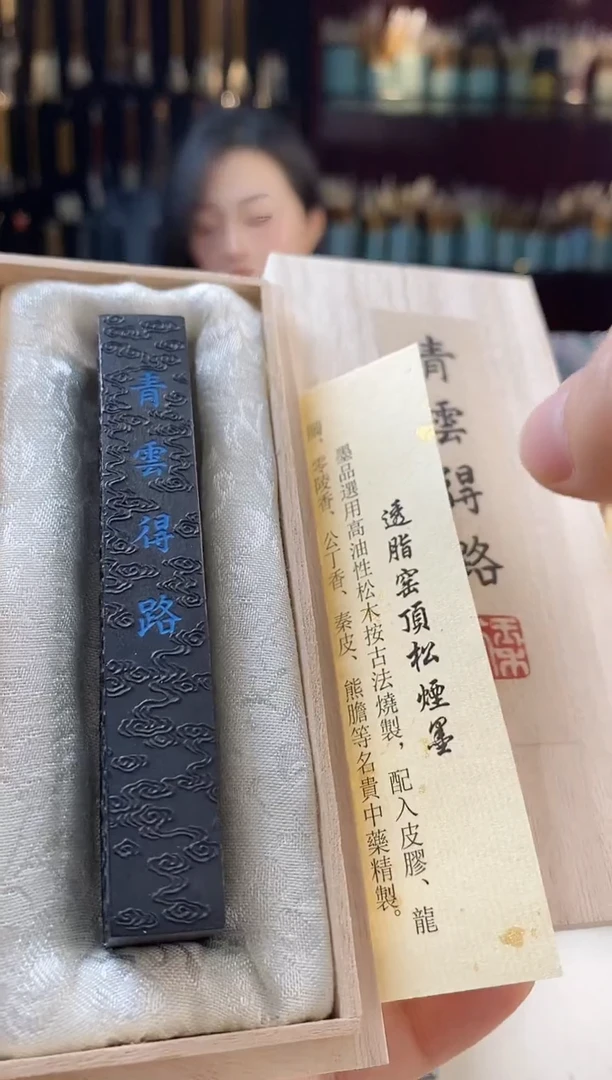 青雲得路
透脂窑頂松煙墨
墨品選用高油性松木按古法燒製，配入皮膠、龍
腦、零陵香、公丁香、秦皮、熊膽等名貴中藥精製。
青雲得路